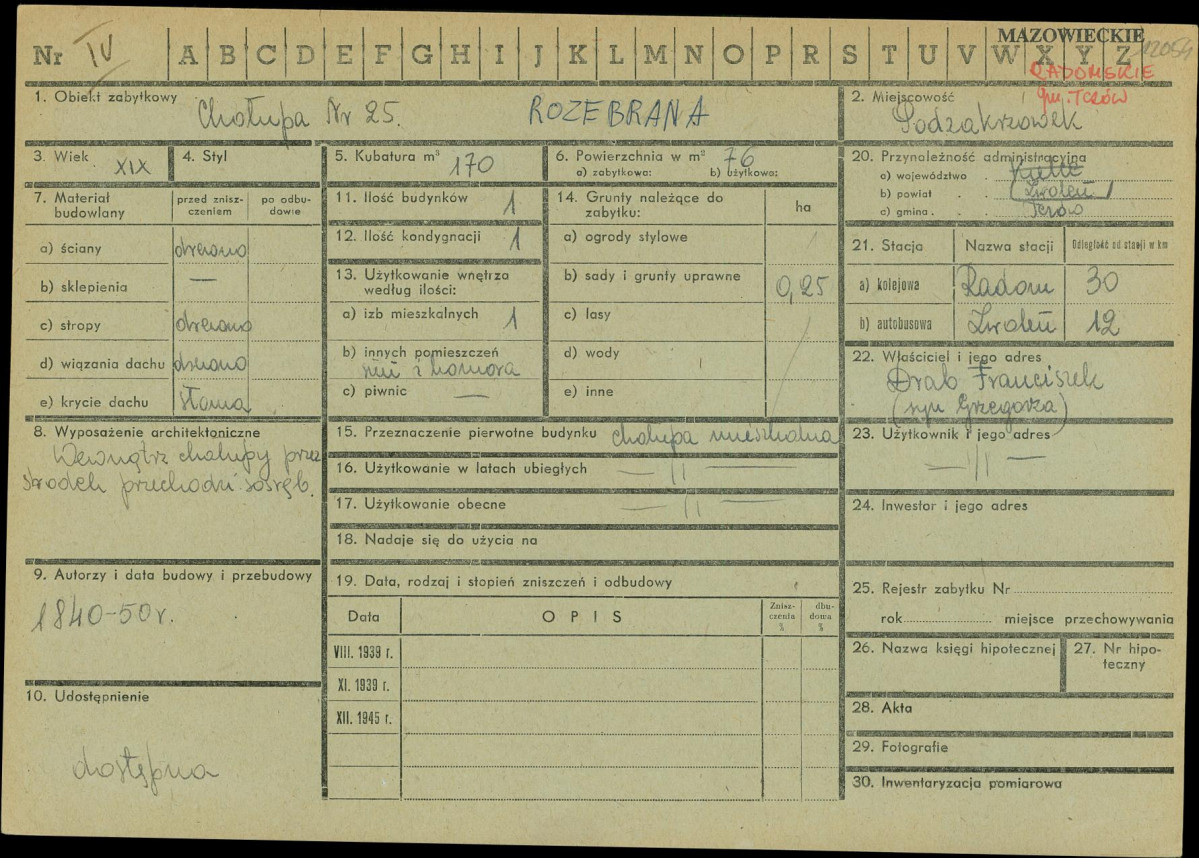 MAZOWIECKIE
Nr IV A B C D E F G H I J K L M N O P R S T U V W X Y Z 12054
RADOMSKIE
gm. Tczów
1. Obiekt zabytkowy
Chałupa Nr 25. ROZEBRANA
2. Miejscowość
Podzakrzówek
3. Wiek XIX
4. Styl
5. Kubatura m³ 170
6. Powierzchnia w m² 76
a) zabytkowa: b) użytkowa:
7. Materiał budowlany
przed zniszczeniem
po odbudowie
a) ściany drewno
b) sklepienia —
c) stropy drewno
d) wiązania dachu drewno
e) krycie dachu słoma
8. Wyposażenie architektoniczne
Wewnątrz chałupy przez
środek przechodzi sosręb.
9. Autorzy i data budowy i przebudowy
1840-50 r.
10. Udostępnienie
dostępna
11. Ilość budynków 1
12. Ilość kondygnacji 1
13. Użytkowanie wnętrza
według ilości:
a) izb mieszkalnych 1
b) innych pomieszczeń
sień i komora
c) piwnic —
14. Grunty należące do
zabytku:
ha
a) ogrody stylowe
b) sady i grunty uprawne 0,25
c) lasy
d) wody
e) inne
15. Przeznaczenie pierwotne budynku chałupa mieszkalna
16. Użytkowanie w latach ubiegłych — 11 —
17. Użytkowanie obecne — 11 —
18. Nadaje się do użycia na
19. Data, rodzaj i stopień zniszczeń i odbudowy
Data OPIS Zniszczenia % dbudowa %
VIII. 1939 r.
XI. 1939 r.
XII. 1945 r.
20. Przynależność administracyjna
a) województwo Kielce
b) powiat Zwoleń
c) gmina Tczów
21. Stacja Nazwa stacji Odległość od stacji w km
a) kolejowa Radom 30
b) autobusowa Zwoleń 12
22. Właściciel i jego adres
Drab Franciszek
(syn Grzegorza)
23. Użytkownik i jego adres
— 11 —
24. Inwestor i jego adres
25. Rejestr zabytku Nr
rok miejsce przechowywania
26. Nazwa księgi hipotecznej
27. Nr hipoteczny
28. Akta
29. Fotografie
30. Inwentaryzacja pomiarowa